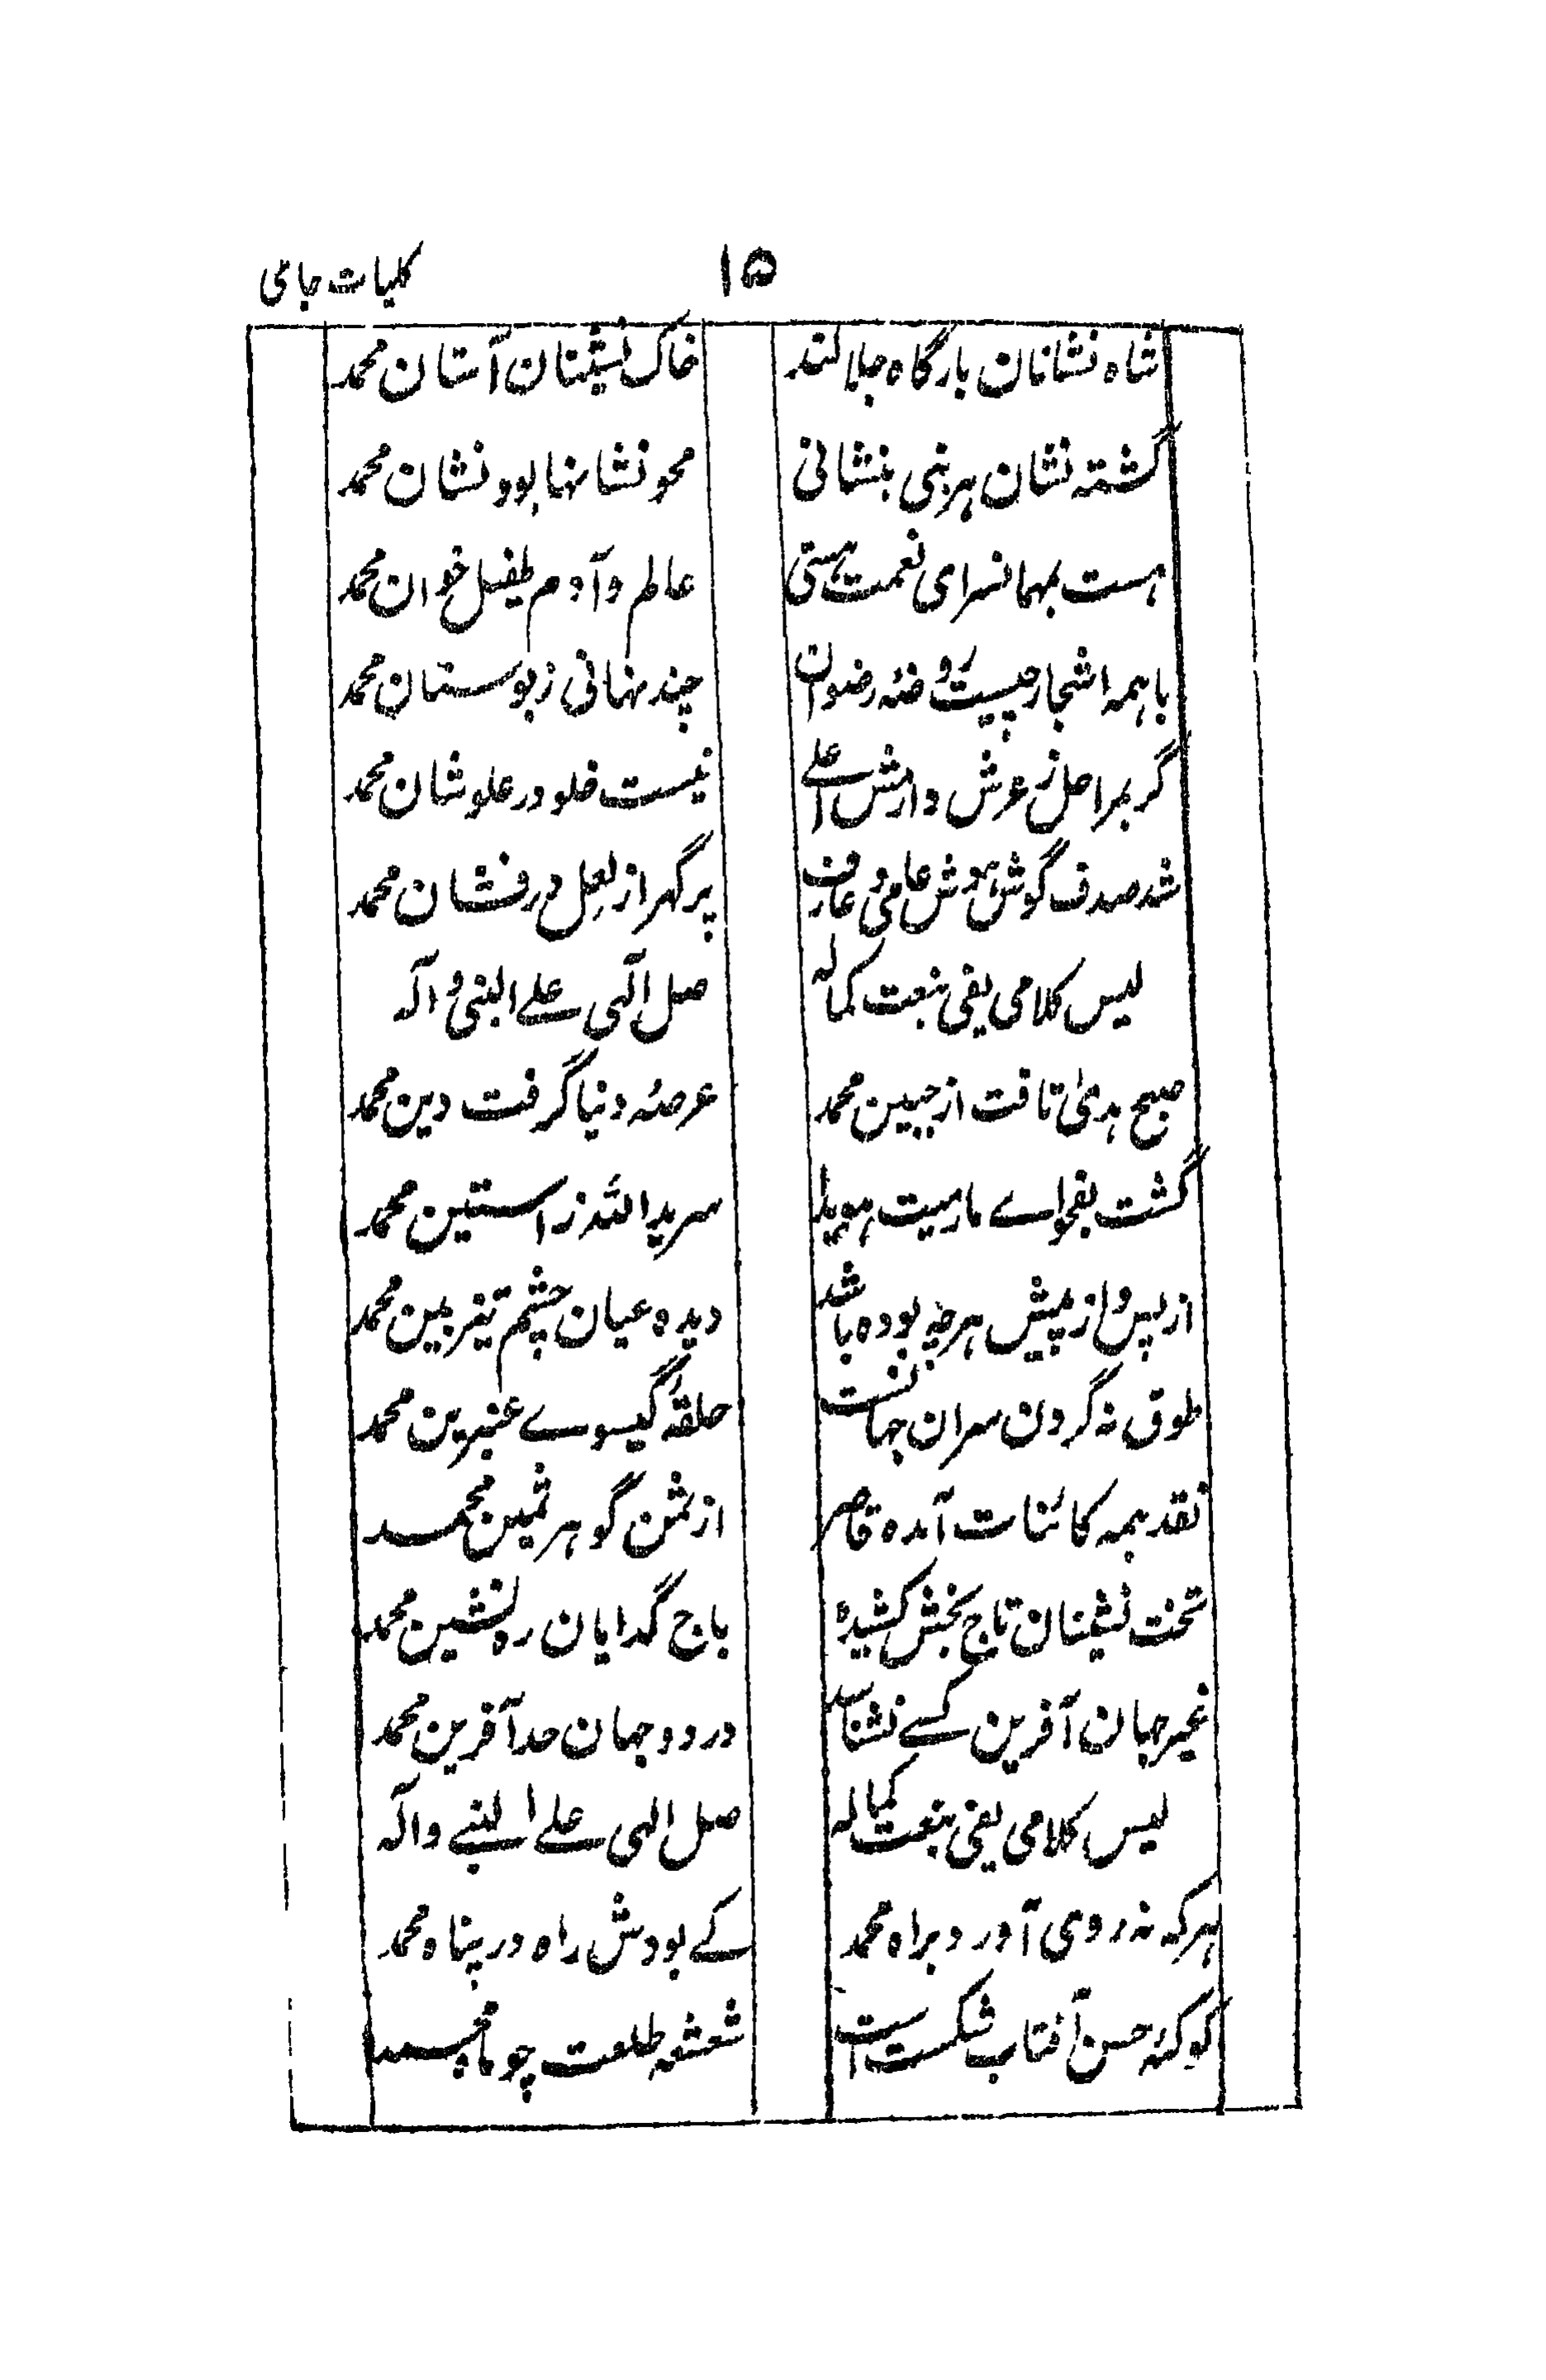 ۱۵ کلیات جامی
شاه نشانان بارگاه جلالند خاک نشینان آستان محمد
گشته نشان هر نبی بنشانی محو نشانها بود نشان محمد
هست بمهمانسرای نعمت هستی عالم و آدم طفیل خوان محمد
باهمه اشجار چیست روضه رضوان چند نهانی ز بوستان محمد
گر بمراحل ز عرش دارمش اعلے نیست غلو در علو شان محمد
شد صدف گوش هوش عامی و عارف پر گهر از لعل در فشان محمد
لیس کلامی یفی بنعت کماله صل الٓهی علے النبی و آله
صبح هدیٰ تافت از جبین محمد عرصهٔ دنیا گرفت دین محمد
گشت بفحواے مارمیت هویدا سر یدالله ز استین محمد
از پس و از پیش هرچه بوده باشد دیده عیان چشم تیزبین محمد
طوق نه گردن سران جهانست حلقهٔ گیسوے عنبرین محمد
نقد همه کائنات آمده قاصر از ثمن گوهر ثمین محمد
تخت نشینان تاج بخش کشیده باج گدایان ره نشین محمد
غیر جهان آفرین کسے نشناسد در دو جهان حد آفرین محمد
لیس کلامی یفی بنعت کماله صل الهی علے النبے و آله
هر که نه روی آورد براه محمد کے بودش راه در پناه محمد
کوکبهٔ حسن آفتاب شکست است شعشعه طلعت چو ماه محمد